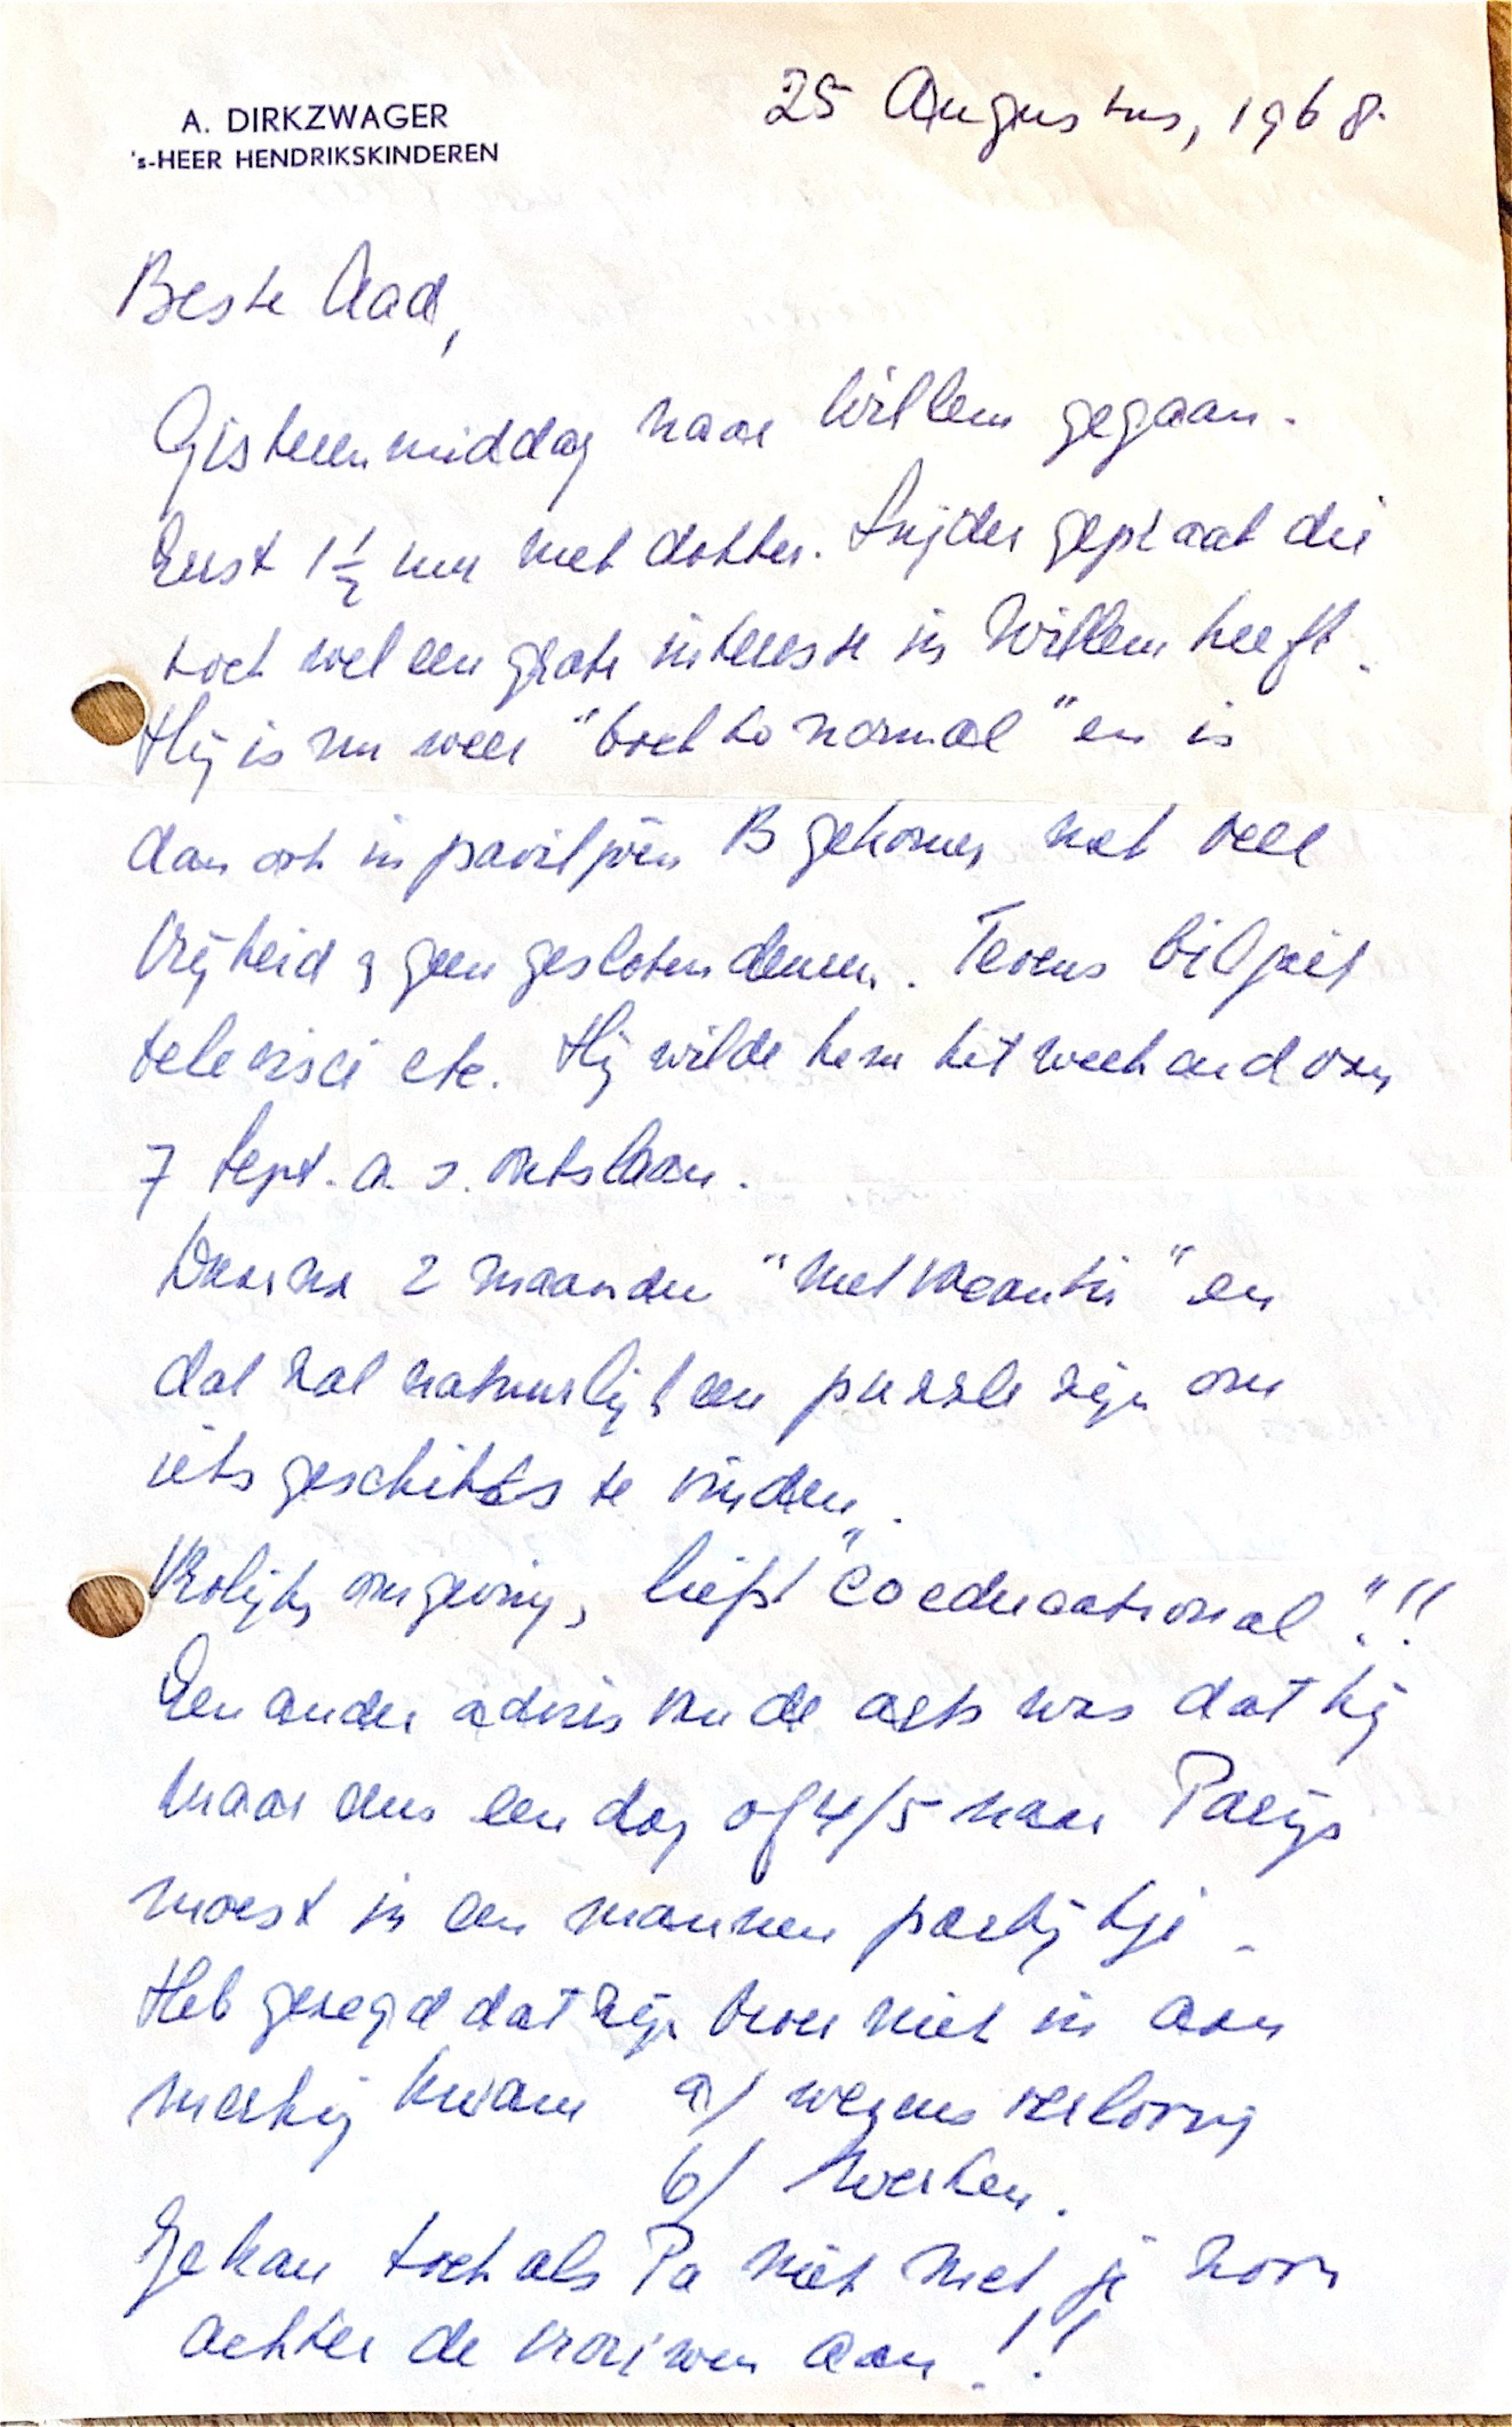 A. DIRKZWAGER
's-HEER HENDRIKSKINDEREN
25 Augustus, 1968.
Beste Aad,
Gisterenmiddag naar Willem gegaan.
Eerst 1½ uur met dokter. Snijder gepraat die
toch wel een grote interesse in Willem heeft.
Hij is nu weer "back to normal" en is
dan ook in paviljoen B gekomen met veel
vrijheid & geen gesloten deuren. Tevens biljart
televisie etc. Hij wilde hem het weekend van
7 Sept. a.s. ontslaan.
Daarna 2 maanden "met vacantie" en
dat zal natuurlijk een puzzle zijn om
iets geschikts te vinden.
Vrolijke omgeving, liefst "coeducational"!!
Een ander advies van de arts was dat hij
maar eens een dag of 4/5 naar Parijs
moest in een mannen partijtje.
Heb gezegd dat zijn broer niet in aan
merking kwam a/ wegens verloving
b/ werken.
Je kan toch als Pa niet met je zoon
achter de vrouwen aan!!